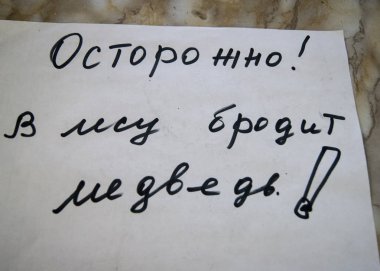 Осторожно!
В лесу бродит
медведь.!